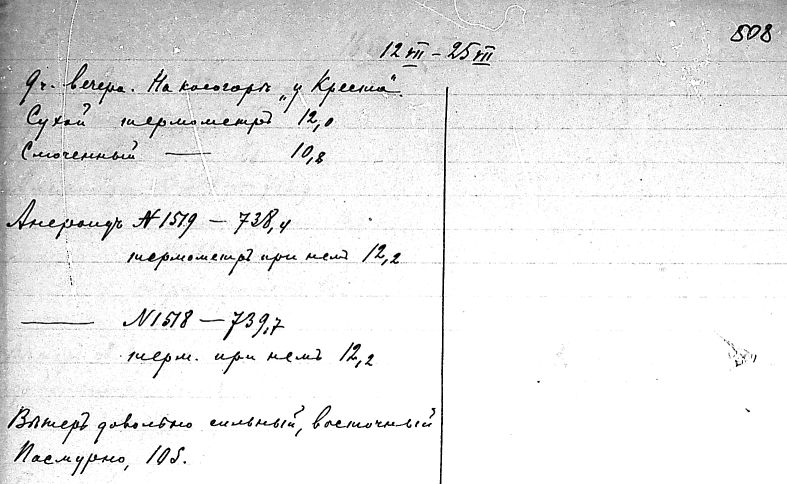 508
12 VII – 25 VII
9 ч. вечера. На косогорѣ „у Креста“.
Сухой термометръ 12,0
Смоченный — 10,8
Анероидъ № 1519 — 738,4
термометръ при немъ 12,2
— № 1518 — 739,7
терм. при немъ 12,2
Вѣтеръ довольно сильный, восточный
Пасмурно, 10 S.